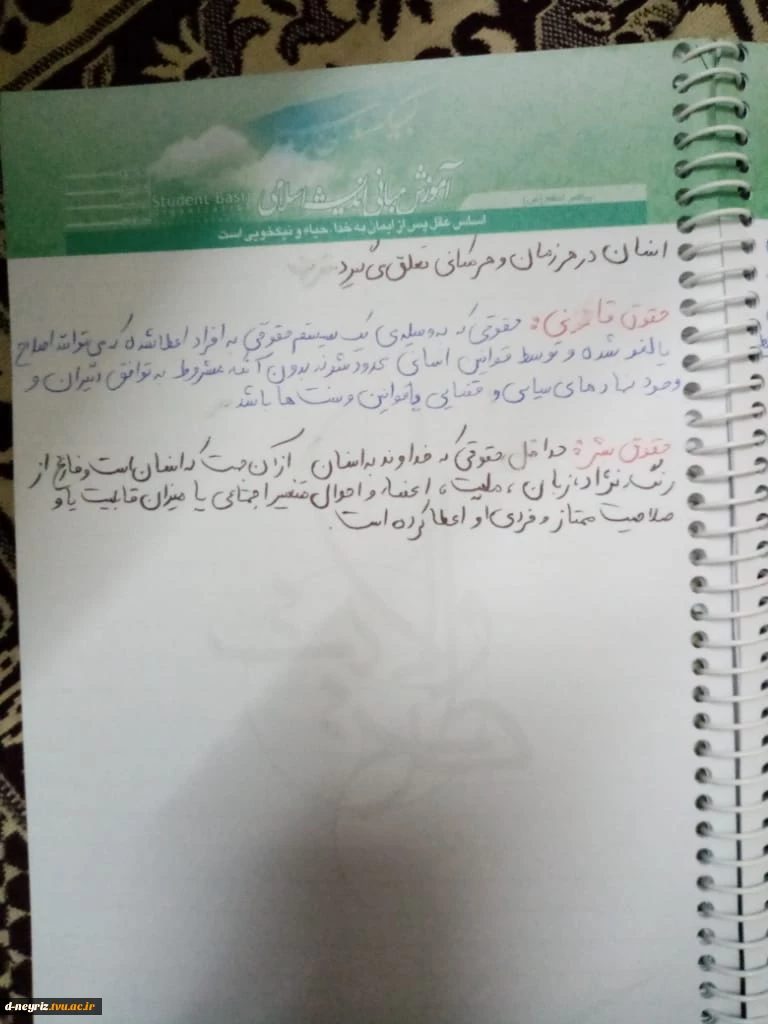 Student Basij
آموزش مبانی اندیشه اسلامی
پیامبر اعظم (ص)
اساس عقل پس از ایمان به خدا، حیاء و نیکخویی است
انسان در هر زمان و هر مکانی تعلق می گیرد
حقوق قانونی: حقوقی که به وسیله ی یک سیستم حقوقی به افراد اعطا شده که می توانند اصلاح
یا لغو شده و توسط قوانین انسانی محدود شوند بدون آنکه مشروط به توافق دیگران و
وجود نهادهای سیاسی و قضایی یا قوانین و سنت ها باشد
حقوق بشر: حداقل حقوقی که خداوند به انسان از آن جهت که انسان است و فارغ از
رنگ، نژاد، زبان، ملیت، اعضاء و احوال متغیر اجتماعی یا میزان قابلیت یا و
صلاحیت ممتاز و فردی او اعطا کرده است.
d-neyriz.tvu.ac.ir